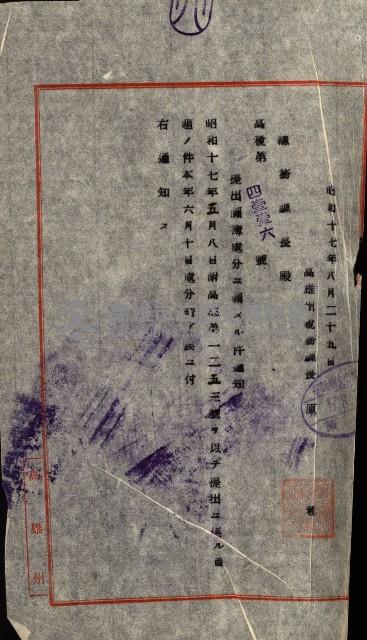 昭和十七年八月二十九日
高雄州税務課長 原
總務課長殿
高税第四壹壹六號
提出圖簿處分ニ關スル件通知
昭和十七年五月八日附高總第一二五三號ヲ以テ提出ニ係ル首
題ノ件本年六月十日處分濟ニ付
右通知ス
高雄州